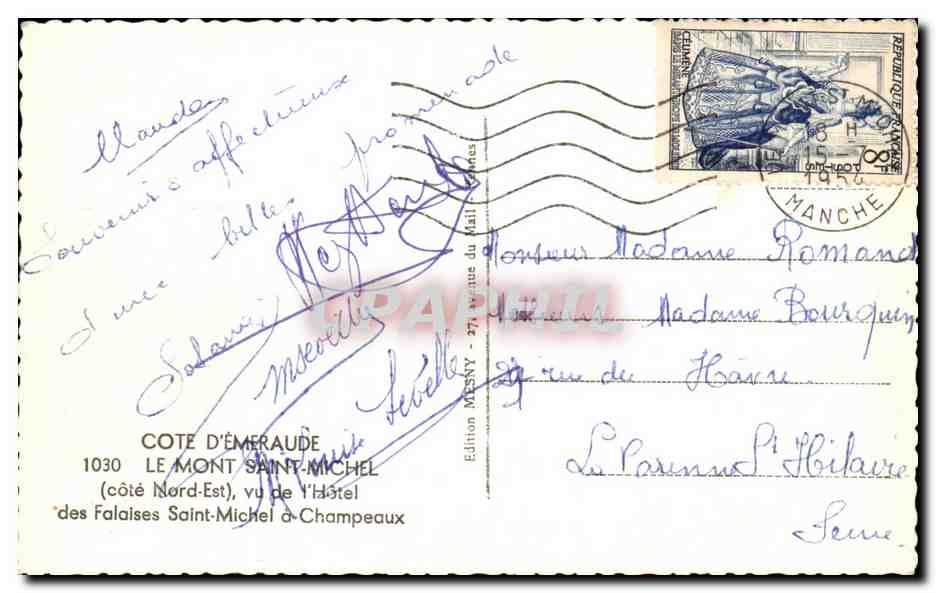 Maude
Souvenirs affectueux
d'une belle promenade
Louise Lebelle
COTE D'ÉMERAUDE
1030 LE MONT SAINT-MICHEL
(côté Nord-Est), vu de l'Hôtel
des Falaises Saint-Michel à Champeaux
Edition MESNY - 27, avenue du Mail - Rennes
CPAPHIL
REPUBLIQUE FRANÇAISE
CÉLIMÈNE
8F
POSTES
1954
MANCHE
Monsieur Madame Romand
Monsieur Madame Bourquin
29 rue du Hâvre
La Varenne St Hilaire
Seine